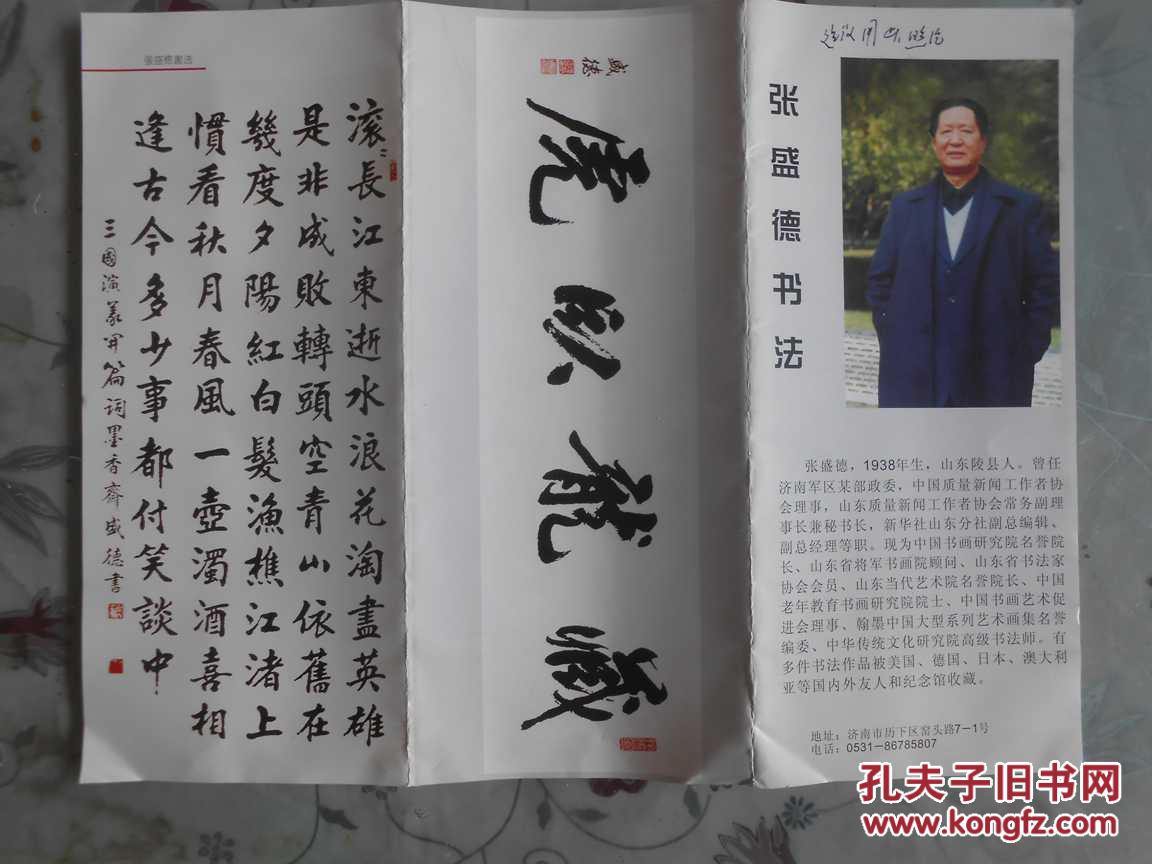 張盛德書法
滚〻長江東逝水浪花淘盡英雄
是非成敗轉頭空青山依舊在
幾度夕陽紅白髮漁樵江渚上
慣看秋月春風一壺濁酒喜相
逢古今多少事都付笑談中
三國演義開篇词墨香齋盛德書
藏龍卧虎
盛德
张盛德书法
张盛德，1938年生，山东陵县人。曾任
济南军区某部政委，中国质量新闻工作者协
会理事，山东质量新闻工作者协会常务副理
事长兼秘书长，新华社山东分社副总编辑、
副总经理等职。现为中国书画研究院名誉院
长、山东省将军书画院顾问、山东省书法家
协会会员、山东当代艺术院名誉院长、中国
老年教育书画研究院院士、中国书画艺术促
进会理事、翰墨中国大型系列艺术画集名誉
编委、中华传统文化研究院高级书法师。有
多件书法作品被美国、德国、日本、澳大利
亚等国内外友人和纪念馆收藏。
地址：济南市历下区窑头路7-1号
电话：0531-86785807
孔夫子旧书网
www.kongfz.com